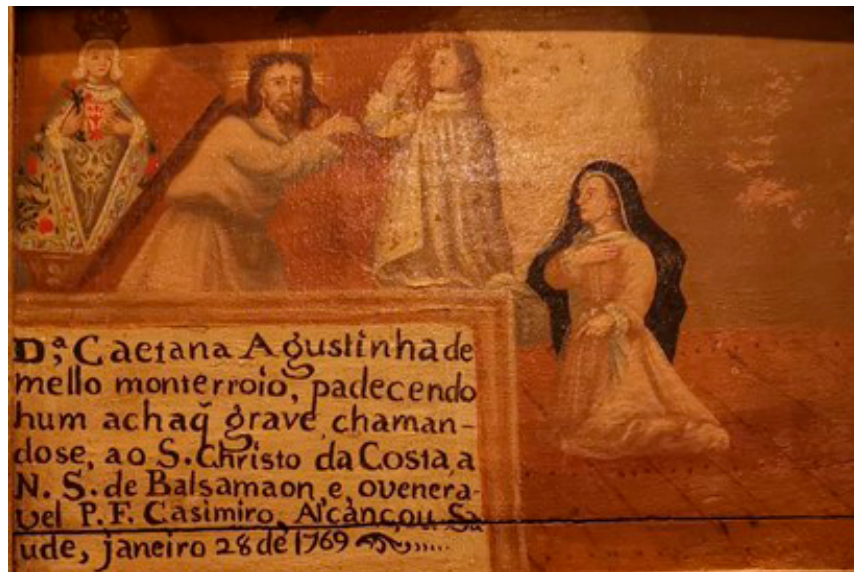 Dª; Caetana Agustinha de
mello monterroio, padecendo
hum achaq̃ grave, chaman-
dose, ao S. Christo da Costa, a
N. S. de Balsamaon, e, ovenera-
vel P. F. Casimiro, Alcançou Sa
ude, janeiro 28 de 1769